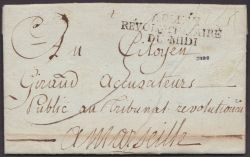 ARMÉE
REVOLUTIONNAIRE
DU MIDI
Au Citoyen
Giraud Accusateurs
Public au Tribunal revolution
a marseille